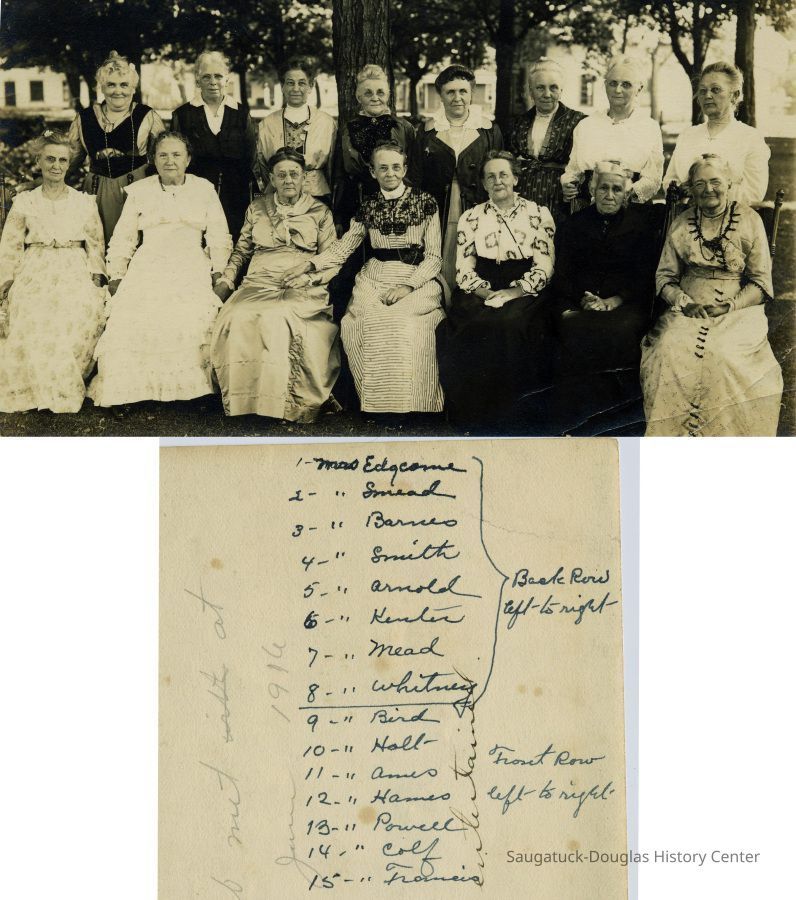 1- Mrs Edgcome
2- " Smead
3- " Barnes
4- " Smith
5- " Arnold
6- " Kenter
7- " Mead
8- " Whitney
Back Row
left to right
9- " Bird
10- " Holt
11- " Ames
12- " Hames
13- " Powell
14- " Colf
15- " Francis
Front Row
left to right
entertained
met with at
June 1916
Saugatuck-Douglas History Center